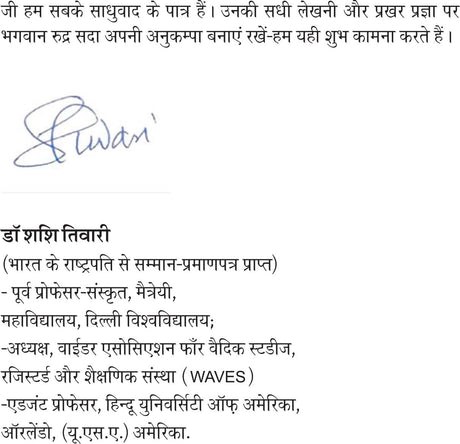 जी हम सबके साधुवाद के पात्र हैं। उनकी सधी लेखनी और प्रखर प्रज्ञा पर
भगवान रुद्र सदा अपनी अनुकम्पा बनाएं रखें-हम यही शुभ कामना करते हैं।
STiwari
डॉ शशि तिवारी
(भारत के राष्ट्रपति से सम्मान-प्रमाणपत्र प्राप्त)
- पूर्व प्रोफेसर-संस्कृत, मैत्रेयी,
महाविद्यालय, दिल्ली विश्वविद्यालय;
-अध्यक्ष, वाईडर एसोसिएशन फॉर वैदिक स्टडीज,
रजिस्टर्ड और शैक्षणिक संस्था (WAVES)
-एडजंट प्रोफेसर, हिन्दू युनिवर्सिटी ऑफ़ अमेरिका,
ऑरलेंडो, (यू.एस.ए.) अमेरिका.